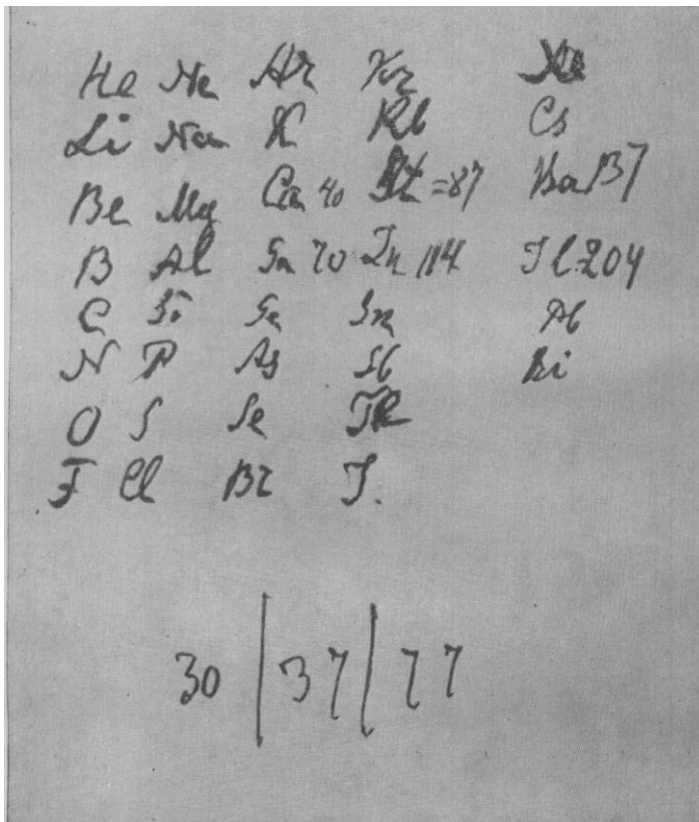 He Ne Ar Kr Xe
Li Na K Rb Cs
Be Mg Ca 40 Sr =87 Ba 137
B Al Ga 70 In 114 Tl 204
C Si Ge Sn Pb
N P As Sb Bi
O S Se Te
F Cl Br J.
30 | 37 | 77